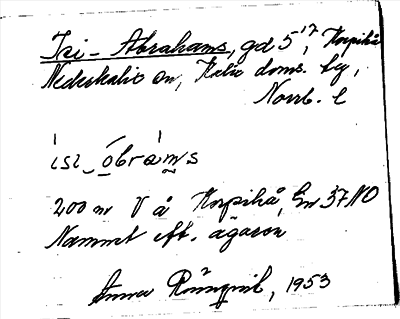 Isi-Abrahams, gd 5¹⁷, Korpikå
Nederkalix sn, Kalix doms. bg,
Norrb. l
ìsi‿óbràm̭s
200 m V å Korpikå, Gen 37 NO
Namnet eft. ägaren
Anna 1953